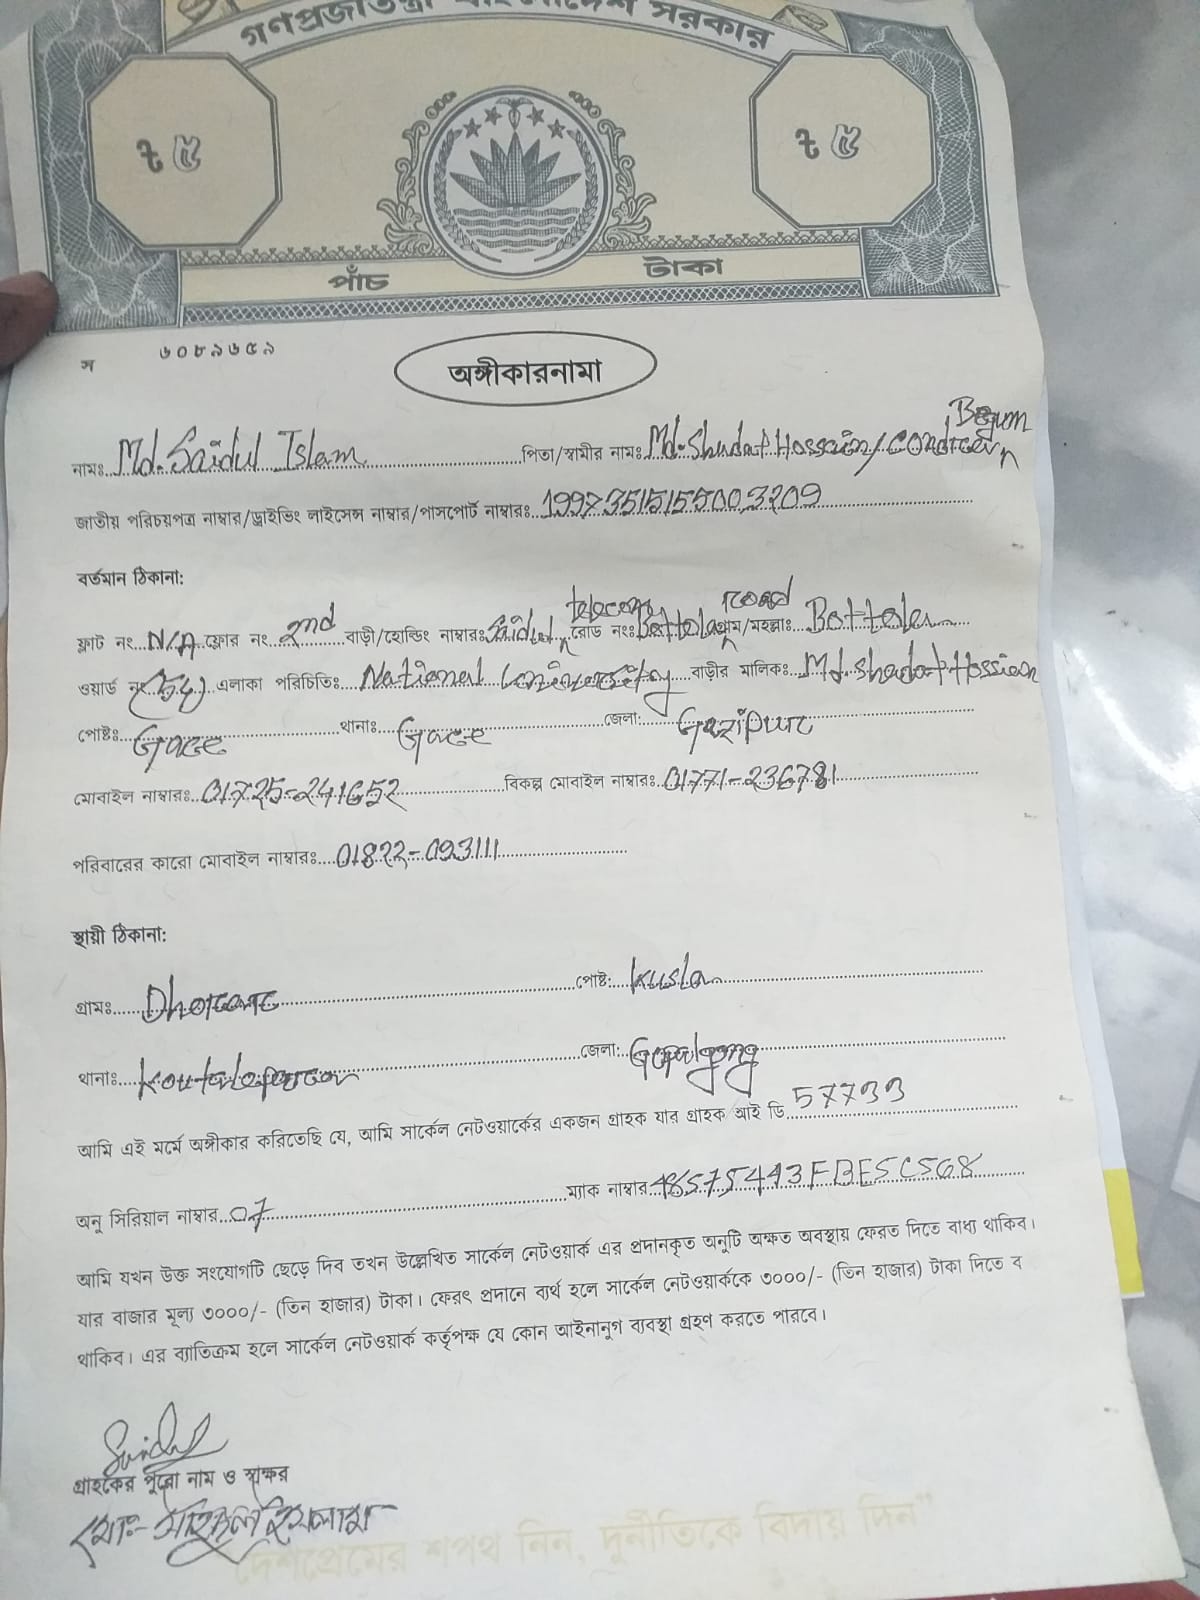 গণপ্রজাতন্ত্রী বাংলাদেশ সরকার
৳ ৫ ৳ ৫
পাঁচ টাকা
স ৬০৮৯৬৫৯
অঙ্গীকারনামা
Begum
নামঃ Md. Saidul Islam পিতা/স্বামীর নামঃ Md. Shadat Hossain/
জাতীয় পরিচয়পত্র নাম্বার/ড্রাইভিং লাইসেন্স নাম্বার/পাসপোর্ট নাম্বারঃ 19973515155003209
বর্তমান ঠিকানা:
telecom road
ফ্লাট নং N/A ফ্লোর নং 2nd বাড়ী/হোল্ডিং নাম্বারঃ Saidul রোড নংঃ Bottola গ্রাম/মহল্লাঃ Bottola
ওয়ার্ড নং এলাকা পরিচিতিঃ National University বাড়ীর মালিকঃ Md. Shadat Hossien
পোষ্টঃ Gace থানাঃ Gace জেলা: Gazipur
মোবাইল নাম্বারঃ 01725-241652 বিকল্প মোবাইল নাম্বারঃ 01771-236781
পরিবারের কারো মোবাইল নাম্বারঃ 01822-093111
স্থায়ী ঠিকানা:
গ্রামঃ পোষ্ট: Kusla
থানাঃ জেলা: Gopalgong
আমি এই মর্মে অঙ্গীকার করিতেছি যে, আমি সার্কেল নেটওয়ার্কের একজন গ্রাহক যার গ্রাহক আই ডি 57733
অনু সিরিয়াল নাম্বার 07 ম্যাক নাম্বার 48575443FBE5C568
আমি যখন উক্ত সংযোগটি ছেড়ে দিব তখন উল্লেখিত সার্কেল নেটওয়ার্ক এর প্রদানকৃত অনুটি অক্ষত অবস্থায় ফেরত দিতে বাধ্য থাকিব।
যার বাজার মূল্য ৩০০০/- (তিন হাজার) টাকা। ফেরৎ প্রদানে ব্যর্থ হলে সার্কেল নেটওয়ার্ককে ৩০০০/- (তিন হাজার) টাকা দিতে ব
থাকিব। এর ব্যাতিক্রম হলে সার্কেল নেটওয়ার্ক কর্তৃপক্ষ যে কোন আইনানুগ ব্যবস্থা গ্রহণ করতে পারবে।
Saidul
গ্রাহকের পুরো নাম ও স্বাক্ষর
মোঃ- সাইদুল ইসলাম
"দেশপ্রেমের শপথ নিন, দুর্নীতিকে বিদায় দিন"